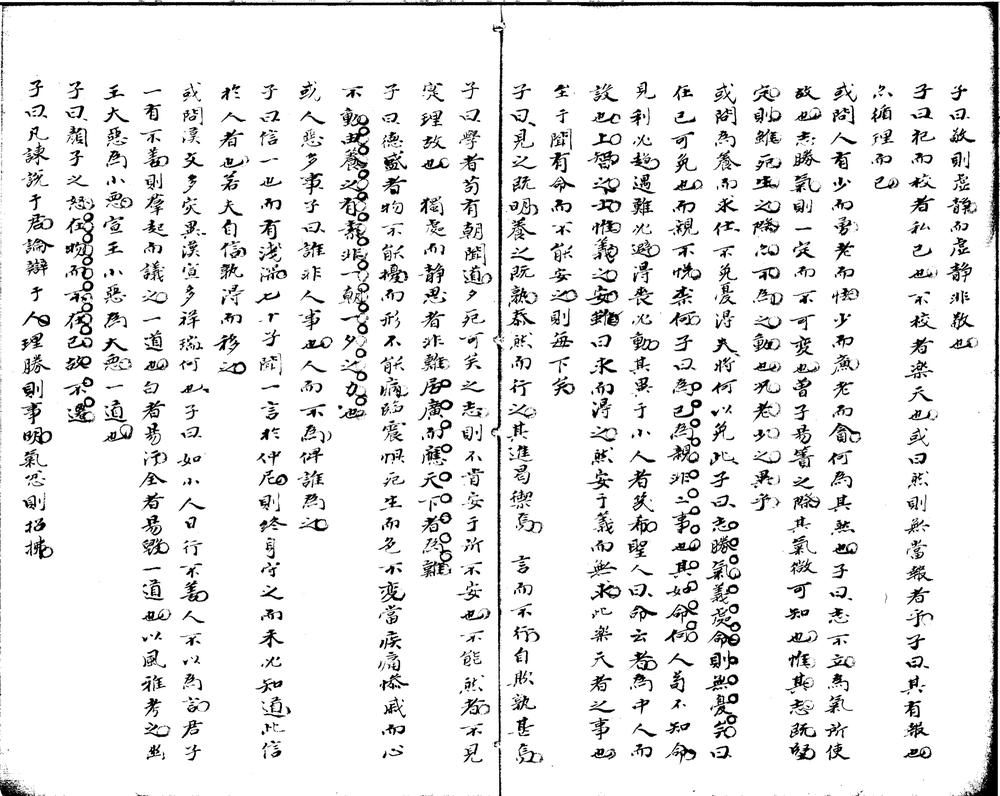 子曰敬則虛靜而虛靜非敬也
子曰犯而校者私己也不校者樂天也或曰然則無當報者乎子曰其有報也
亦循理而已
或問人有少而勇老而怯少而廉老而貪何為其然也子曰志不立為氣所使
故也志勝氣則一定而不可變也曾子易簀之際其氣微可知也惟其志既堅
定則雖死生之際亦不為之動也況老少之異乎
或問為養而求仕不免憂得失將何以免此子曰志勝氣義處命則無憂矣曰
在己可免也而親不悅柰何子曰為己為親非二事也其如命何人苟不知命
見利必趨遇難必避得喪必動其異于小人者幾希聖人曰命云者為中人而
設也上智之士惟義之安雖曰求而得之然安于義而無求此樂天者之事也
至于聞有命而不能安之則每下矣
子曰見之既明養之既熟泰然而行之其進曷禦焉　言而不行自欺孰甚焉
子曰學者苟有朝聞道夕死可矣之志則不肯安于所不安也不能然者不見
實理故也　獨處而靜思者非難居廣而應天下者為難
子曰德盛者物不能擾而形不能病臨震懼死生而色不變當疾痛慘戚而心
不動由養之有素非一朝一夕之力也
或人惡多事子曰誰非人事也人而不為俾誰為之
子曰信一也而有淺深七十子聞一言於仲尼則終身守之而未必知道此信
於人者也若夫自信孰得而移之
或問漢文多災異漢宣多祥瑞何也子曰如小人日行不善人不以為言君子
一有不善則羣起而議之一道也白者易汙全者易毀一道也以風雅考之幽
王大惡為小惡宣王小惡為大惡一道也
子曰顏子之怒在物而不在己故不遷
子曰凡諫說于君論辯于人理勝則事明氣忿則招拂